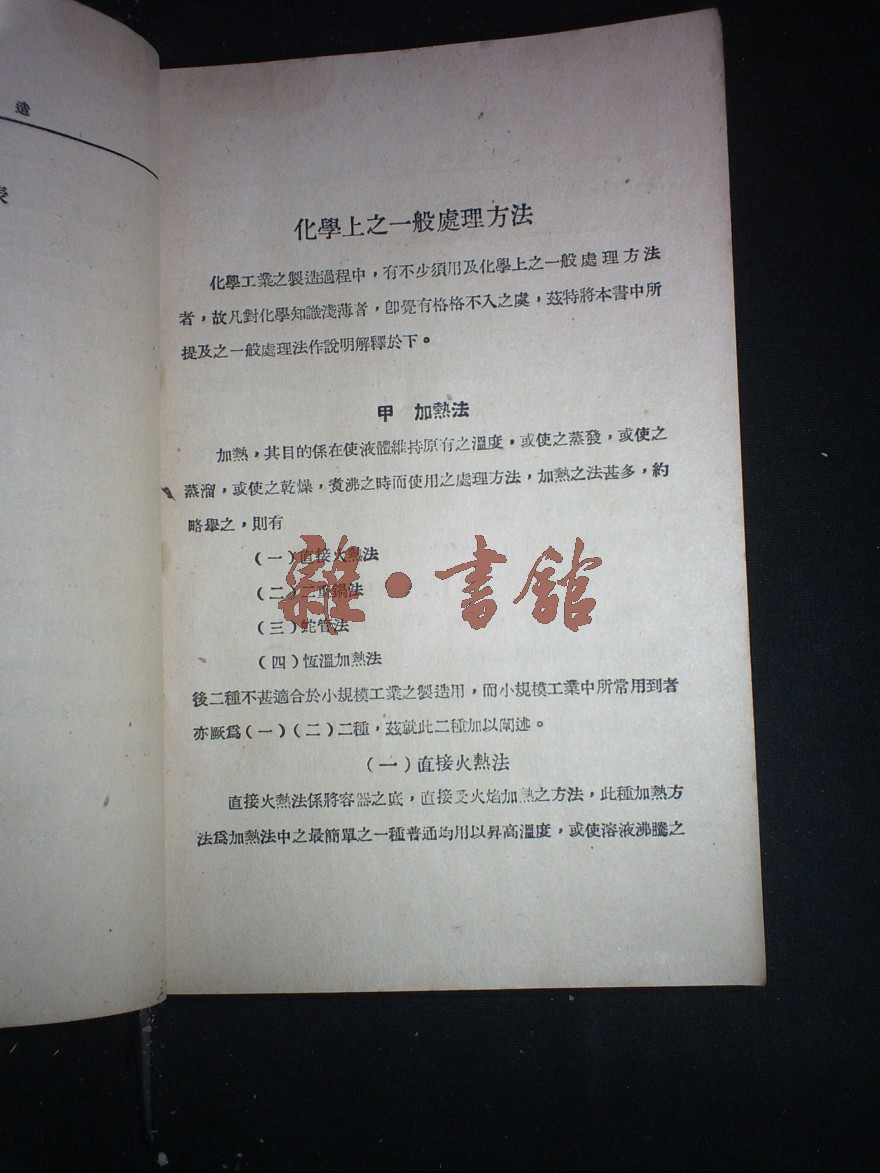 造
化學上之一般處理方法
化學工業之製造過程中，有不少須用及化學上之一般處理方法
者，故凡對化學知識淺薄者，卽覺有格格不入之處，茲特將本書中所
提及之一般處理法作說明解釋於下。
甲 加熱法
加熱，其目的係在使液體維持原有之溫度，或使之蒸發，或使之
蒸溜，或使之乾燥，煑沸之時而使用之處理方法，加熱之法甚多，約
略舉之，則有
（一）直接火熱法
（二）二重鍋法
（三）蛇管法
（四）恆溫加熱法
雜·書館
後二種不甚適合於小規模工業之製造用，而小規模工業中所常用到者
亦厥爲（一）（二）二種，茲就此二種加以闡述。
（一）直接火熱法
直接火熱法係將容器之底，直接受火焰加熱之方法，此種加熱方
法爲加熱法中之最簡單之一種普通均用以昇高溫度，或使溶液沸騰之